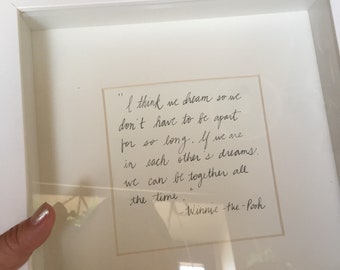 "I think we dream so we
don't have to be apart
for so long. If we are
in each other's dreams
we can be together all
the time."
-Winnie-the-Pooh